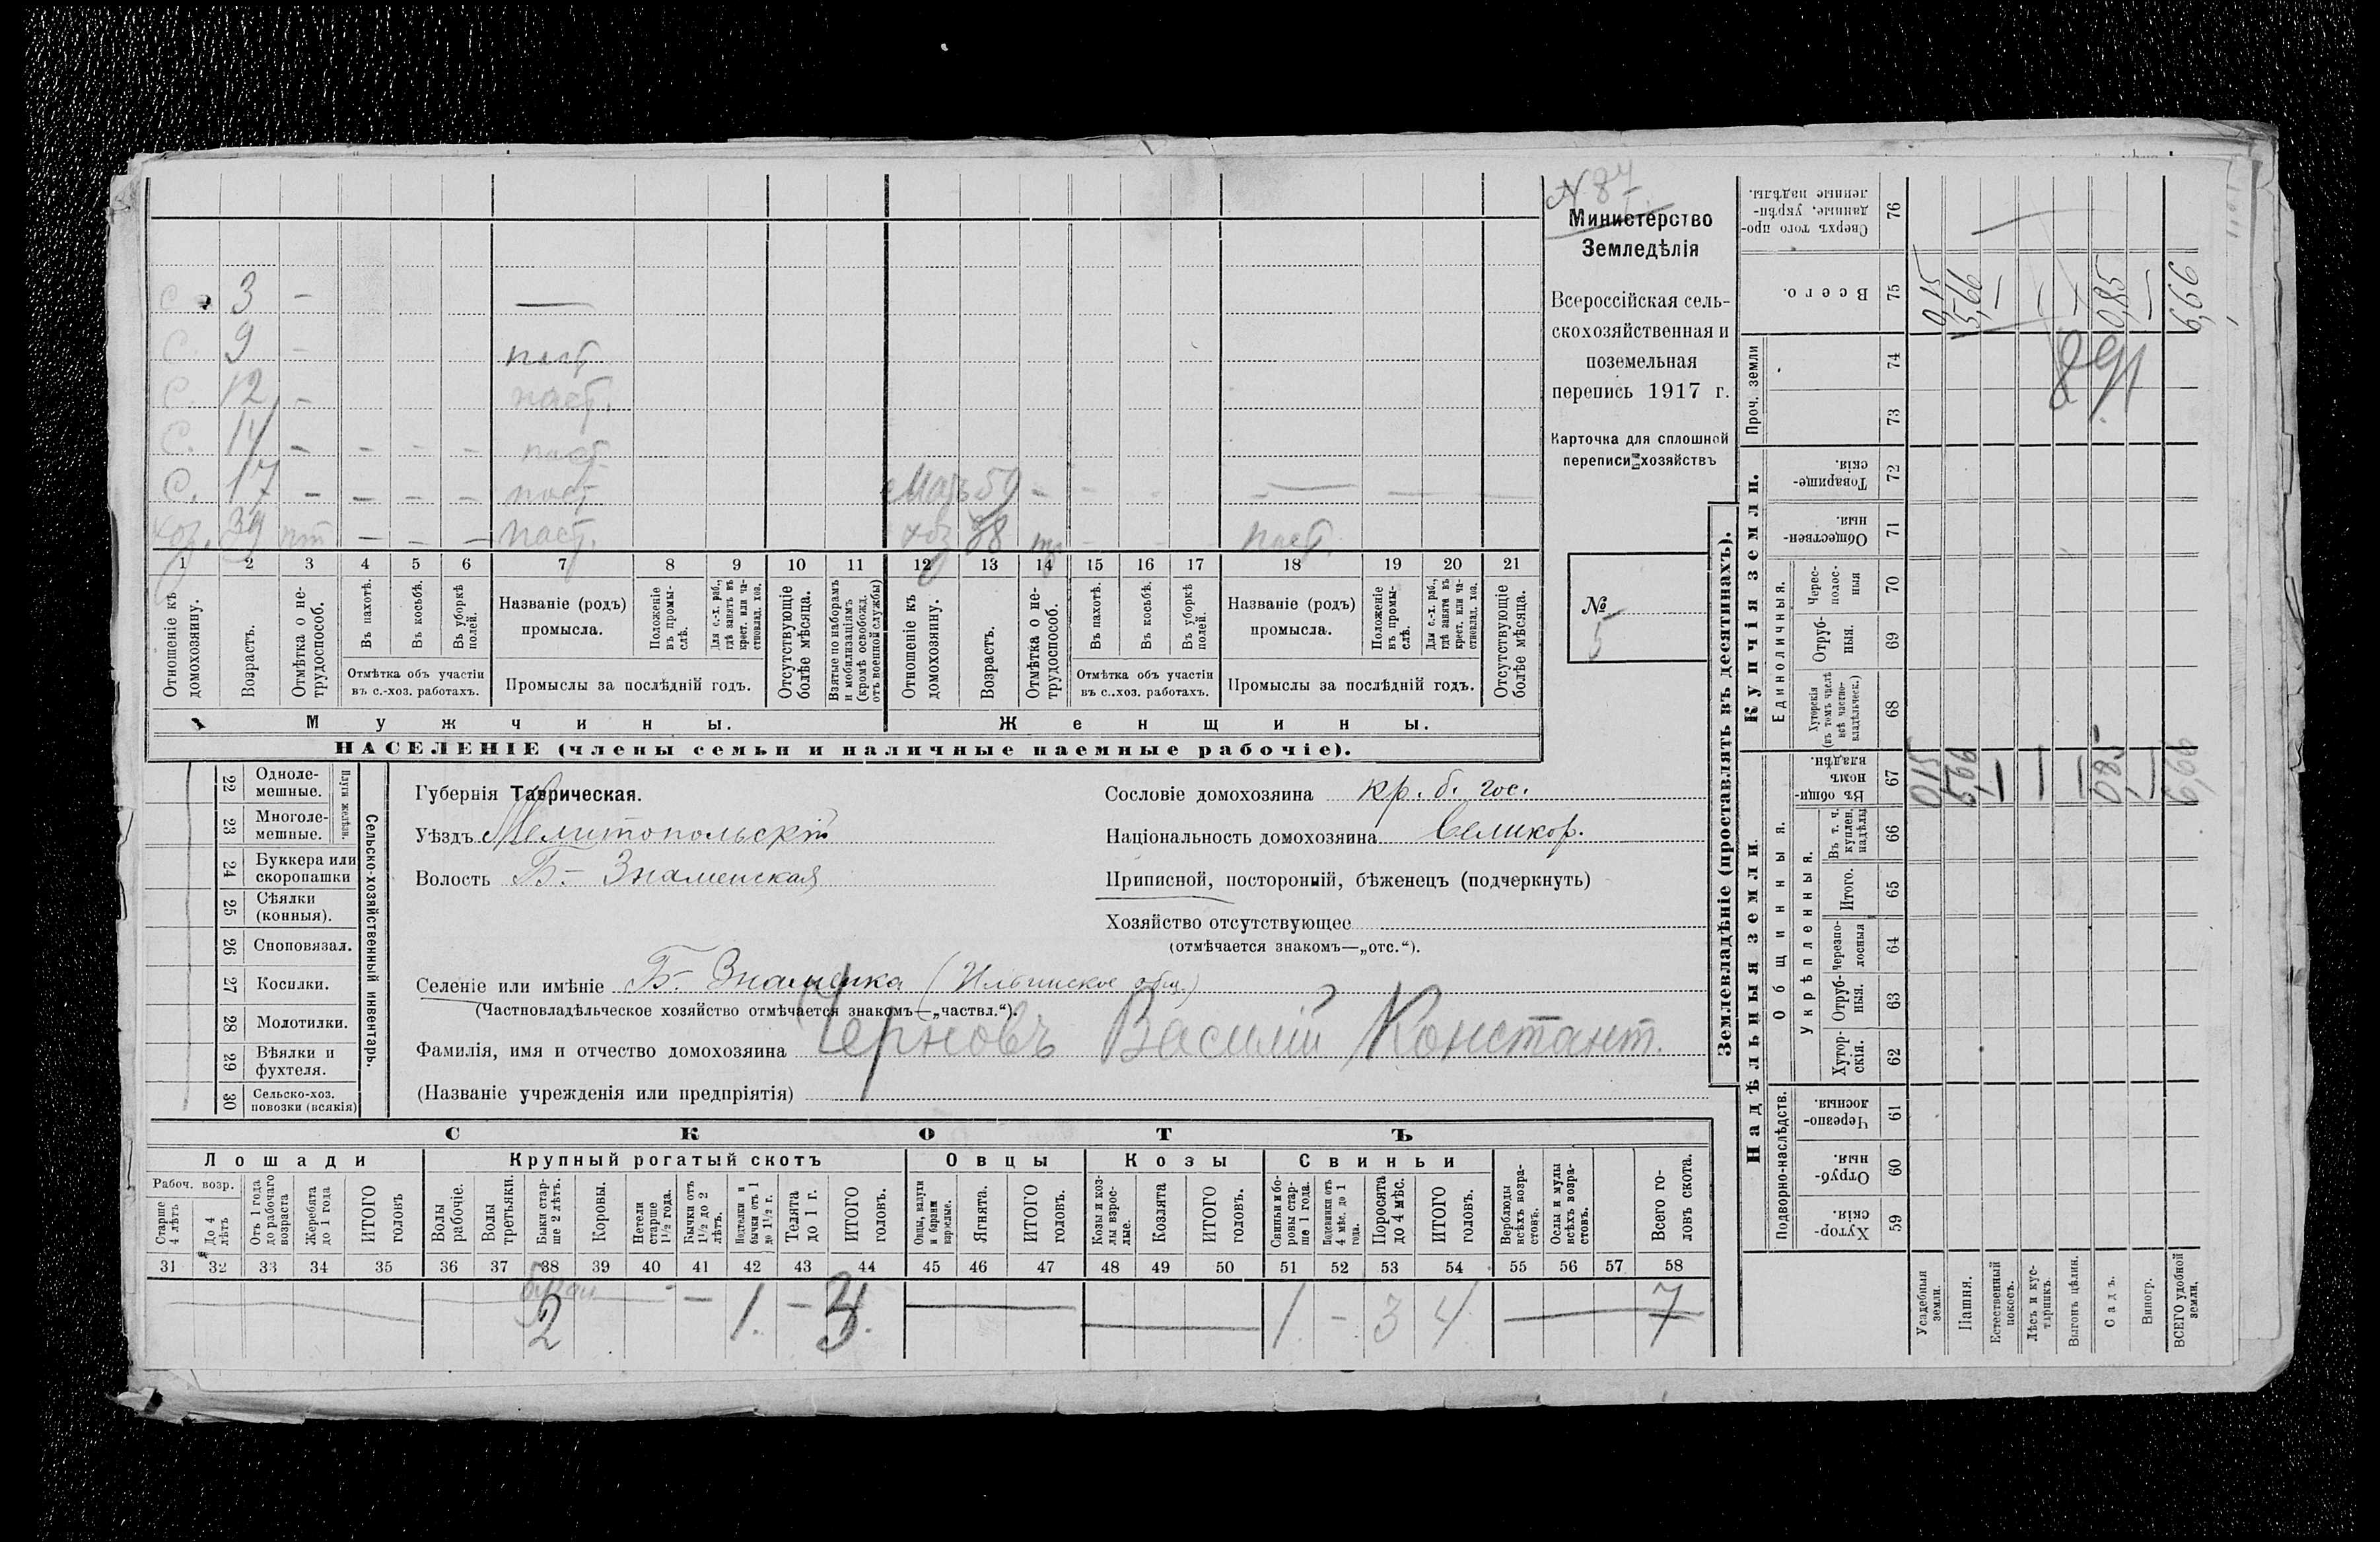 № 84
Министерство
Земледѣлія
Всероссійская сель-
скохозяйственная и
поземельная
перепись 1917 г.
Карточка для сплошной
переписи хозяйствъ
№
5
С. 3 — —
С. 9 — паст.
С. 12 — паст.
С. 14 — — — — паст.
С. 17 — — — — паст. Мать 59 — — — — —
хоз. 39 — — — паст. хоз 38 — — паст.
1 2 3 4 5 6 7 8 9 10 11 12 13 14 15 16 17 18 19 20 21
Отношеніе къ домохозяину.
Возрастъ.
Отмѣтка о не-трудоспособ.
Въ пахотѣ.
Въ косьбѣ.
Въ уборкѣ полей.
Отмѣтка объ участіи
въ с.-хоз. работахъ.
Названіе (родъ)
промысла.
Положеніе въ промы-слѣ.
Для с.-х. раб., гдѣ занятъ въ крест. или ча-стновлад. хоз.
Промыслы за послѣдній годъ.
Отсутствующіе болѣе мѣсяца.
Взятые по наборамъ и мобилизаціямъ (кромѣ освобожд. отъ военной службы)
Отношеніе къ домохозяину.
Возрастъ.
Отмѣтка о не-трудоспособ.
Въ пахотѣ.
Въ косьбѣ.
Въ уборкѣ полей.
Отмѣтка объ участіи
въ с.-хоз. работахъ.
Названіе (родъ)
промысла.
Положеніе въ промы-слѣ.
Для с.-х. раб., гдѣ занята въ крест. или ча-стновлад. хоз.
Промыслы за послѣдній годъ.
Отсутствующіе болѣе мѣсяца.
Мужчины. Женщины.
НАСЕЛЕНІЕ (члены семьи и наличные наемные рабочіе).
22 Одноле-мешные.
23 Многоле-мешные.
Плуги желѣзн.
24 Буккера или скоропашки
25 Сѣялки (конныя).
26 Сноповязал.
27 Косилки.
28 Молотилки.
29 Вѣялки и фухтеля.
30 Сельско-хоз. повозки (всякія)
Сельско-хозяйственный инвентарь.
Губернія Таврическая.
Уѣздъ Мелитопольскій
Волость Б.- Знаменская
Сословіе домохозяина кр. б. гос.
Національность домохозяина Великор.
Приписной, посторонній, бѣженецъ (подчеркнуть)
Хозяйство отсутствующее
(отмѣчается знакомъ—„отс.“).
Селеніе или имѣніе Б- Знаменка (Ильинское общ.)
(Частновладѣльческое хозяйство отмѣчается знакомъ—„частвл.“).
Фамилія, имя и отчество домохозяина Черновъ Василій Констант.
(Названіе учрежденія или предпріятія)
СКОТЪ
Лошади Крупный рогатый скотъ Овцы Козы Свиньи
Рабоч. возр.
Старше 4 лѣтъ
До 4 лѣтъ
Отъ 1 года до рабочаго возраста
Жеребята до 1 года
ИТОГО головъ
Волы рабочіе.
Волы третьяки.
Быки стар-ше 2 лѣтъ.
Коровы.
Нетели старше 1½ года.
Бычки отъ 1½ до 2 лѣтъ.
Нетелки и бычки отъ 1 до 1½ г.
Телята до 1 г.
ИТОГО головъ.
Овцы, валухи и бараны взрослые.
Ягнята.
ИТОГО головъ.
Козы и коз-лы взрос-лые.
Козлята
ИТОГО головъ.
Свиньи и бо-ровы стар-ше 1 года.
Подсвинки отъ 4 мѣс. до 1 года.
Поросята до 4 мѣс.
ИТОГО головъ.
Верблюды всѣхъ возра-стовъ.
Ослы и мулы всѣхъ возра-стовъ.
Всего го-ловъ скота.
31 32 33 34 35 36 37 38 39 40 41 42 43 44 45 46 47 48 49 50 51 52 53 54 55 56 57 58
2 — 1. — 3. 1. — 3 4 7
Землевладѣніе (проставлять въ десятинахъ).
Надѣльныя земли. Купчія земли.
Подворно-наслѣдств.
Общинныя.
Укрѣпленныя.
Единоличныя.
Проч. земли
Хутор-скія. 59
Отруб-ныя. 60
Черезпо-лосныя. 61
Хутор-скія. 62
Отруб-ныя. 63
Черезпо-лосныя 64
Итого. 65
Въ т. ч. куплен. надѣлы 66
Въ общи-номъ владѣн. 67
Хуторскія (въ томъ числѣ всѣ частно-владѣльческ.) 68
Отруб-ныя. 69
Черес-полос-ныя 70
Обществен-ныя 71
Товарище-скія. 72
73
74
Всего. 75
Сверхъ того про-данные, укрѣп-ленные надѣлы. 76
Усадебныя земли. 0,15 0,15
Пашня. 5,66 5,66
Естественный покосъ. — —
Лѣсъ и кус-тарникъ. —
Выгонъ цѣлин. — —
Садъ. 0,85 0,85
Виногр. — —
ВСЕГО удобной земли. 6,66 6,66